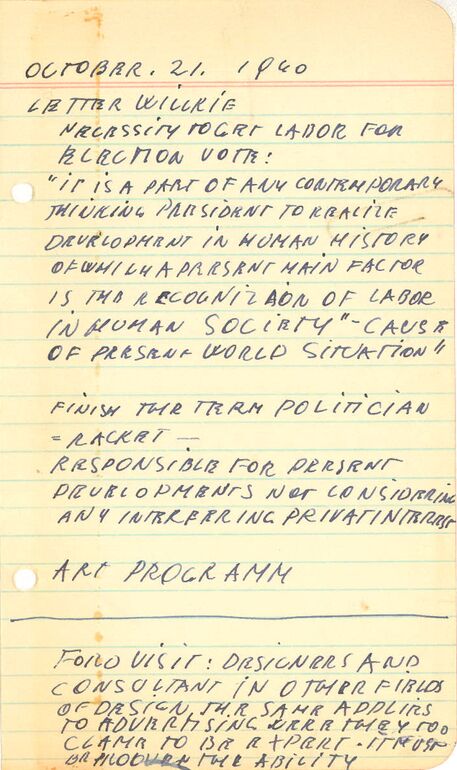 OCTOBER. 21. 1940
LETTER WILLKIE
NECESSITY TO GET LABOR FOR
ELECTION VOTE:
"IT IS A PART OF ANY CONTEMPORARY
THINKING PRESIDENT TO REALIZE
DEVELOPMENT IN HUMAN HISTORY
OF WHICH A PRESENT MAIN FACTOR
IS THE RECOGNIZAION OF LABOR
IN HUMAN SOCIETY"-CAUSE
OF PRESENT WORLD SITUATION"
FINISH THE TERM POLITICIAN
= RACKET —
RESPONSIBLE FOR PRESENT
DEVELOPMENTS NOT CONSIDERING
ANY INTERFERING PRIVAT INTEREST
ART PROGRAMM
FORD VISIT: DESIGNERS AND
CONSULTANT IN OTHER FIELDS
OF DESIGN. THE SAME APPLIES
TO ADVERTISING WERE THEY TOO
CLAME TO BE EXPERT. IT MUST
BE THE ABILITY